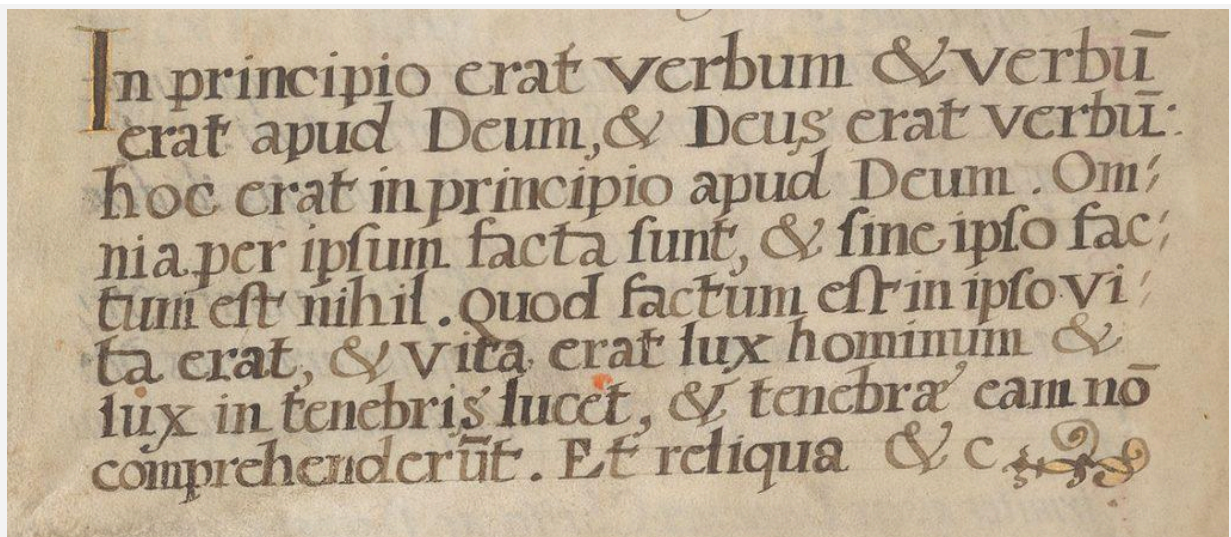 In principio erat verbum & verbū
erat apud Deum, & Deus erat verbū:
hoc erat in principio apud Deum. Om⸗
nia per ipſum facta ſunt, & ſine ipſo fac⸗
tum eſt nihil. Quod factum eſt in ipſo vi⸗
ta erat, & vita erat lux hominum &
lux in tenebris lucet, & tenebræ eam nō
comprehenderūt. Et reliqua & c